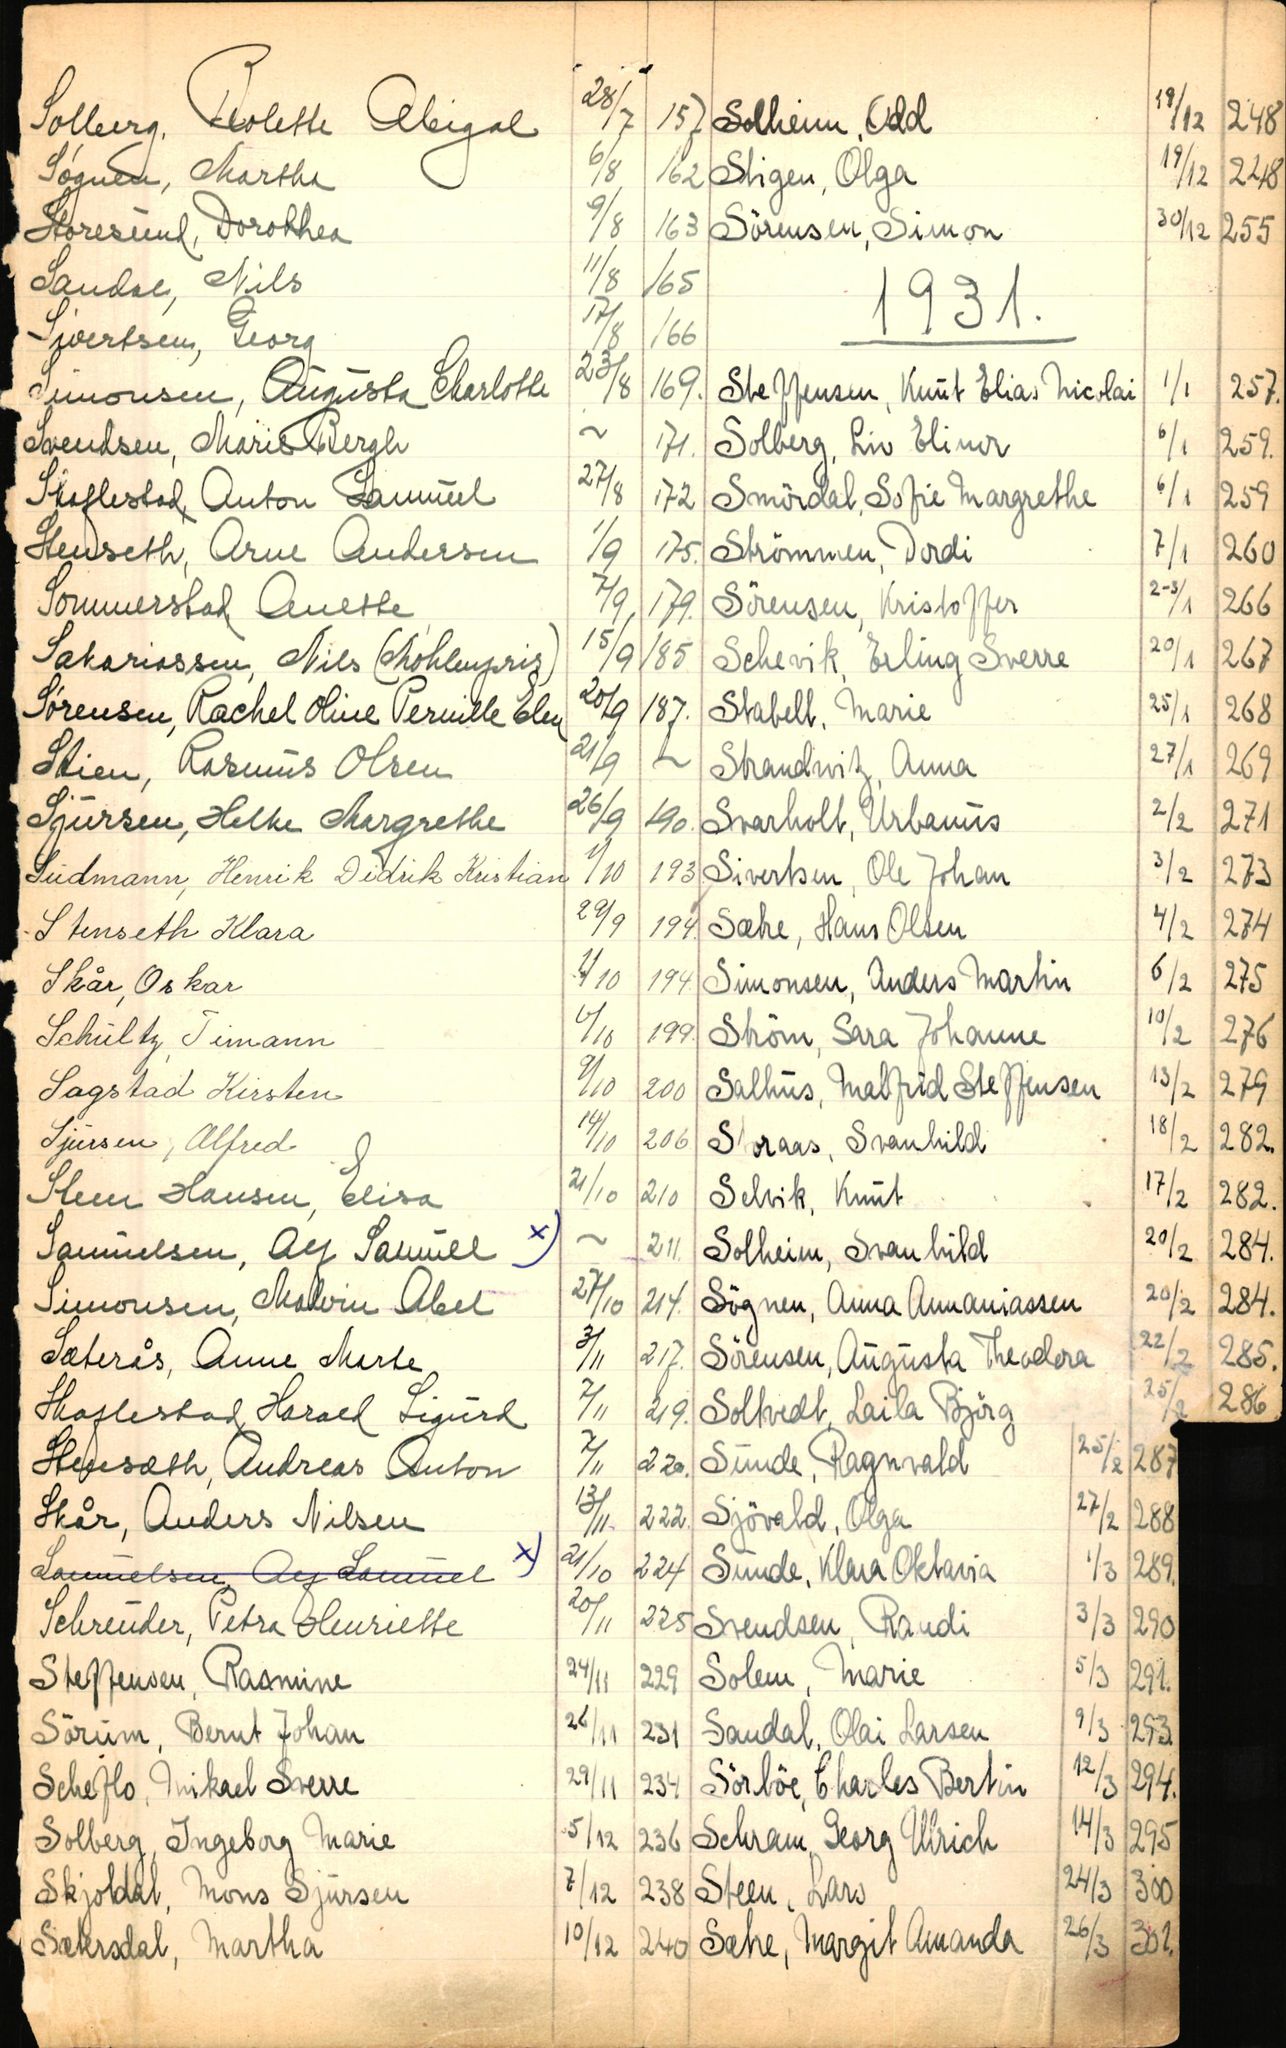 Solberg, Rolette Abigal 28/7 157
Søgnen, Martha 6/8 162
Storesund, Dorothea 9/8 163
Sandal, Nils 11/8 165
Sivertsen, Georg 17/8 166
Simonsen, Augusta Charlotte 23/8 169.
Svendsen, Marie Bergh ~ 171.
Skaflestad, Anton Samuel 27/8 172
Stenseth, Arne Andersen 1/9 175.
Sommerstad, Anette 7/9 179.
Sakariassen, Nils (Møhlenpris) 15/9 185
Sørensen, Rachel Oline Pernille Elen 20/9 187.
Stien, Rasmus Olsen 21/9 ~
Sjursen, Helke Margrethe 26/9 190.
Südmann, Henrik Didrik Kristian 1/10 193
Stenseth Klara 29/9 194.
Skår, Oskar 1/10 194.
Schultz, Timann 199.
Sagstad Kirsten 9/10 200
Sjursen, Alfred 14/10 206
Steen Hansen, Elisa 21/10 210
Samuelsen, Aly Samuel x) ~ 211.
Simonsen, Malvin Abel 27/10 214.
Sæterås, Anne Marte 3/11 217.
Skaflestad, Harald Sigurd 7/11 219.
Stensæth, Andreas Anton 7/11 220.
Skår, Anders Nilsen 13/11 222.
Samuelsen, Aly Samuel x) 21/10 224
Schreuder, Petra Henriette 20/11 225
Steffensen, Rasmine 24/11 229
Sörum, Bernt Johan 26/11 231
Scheflo, Mikael Sverre 29/11 234
Solberg, Ingeborg Marie 5/12 236
Skjoldal, Mons Sjursen 7/12 238
Sætersdal, Martha 10/12 240
Solheim, Odd 19/12 248
Stigen, Olga 19/12 248
Sörensen, Simon 30/12 255
1931.
Steffensen, Knut Elias Nicolai 1/1 257.
Solberg, Liv Elinor 6/1 259.
Smördal, Sofie Margrethe 6/1 259
Strömmen, Dordi 7/1 260
Sörensen, Kristoffer 23/1 266
Schevik, Erling Sverre 20/1 267
Stabell, Marie 25/1 268
Strandwitz, Anna 27/1 269
Svarholt, Urbanus 2/2 271
Sivertsen, Ole Johan 3/2 273
Sætre, Hans Olsen 4/2 274
Simonsen, Anders Martin 6/2 275
Ström, Sara Johanne 10/2 276
Salhus, Malfrid Steffensen 13/2 279
Storaas, Svanhild 18/2 282.
Selvik, Knut 17/2 282.
Solheim, Svanhild 20/2 284.
Sögnen, Anna Annaniassen 20/2 284.
Sörensen, Augusta Theodora 22/2 285.
Soltvedt, Laila Björg 25/2 286
Sunde, Ragnvald 25/2 287
Sjövald, Olga 27/2 288
Sunde, Klara Oktavia 1/3 289.
Svendsen, Randi 3/3 290
Solem, Marie 5/3 291.
Sandal, Olai Larsen 9/3 293
Sörböe, Charles Bertin 12/3 294.
Schram, Georg Ulrich 14/3 295
Steen, Lars 24/3 300
Sætre, Margit Amanda 26/3 301.